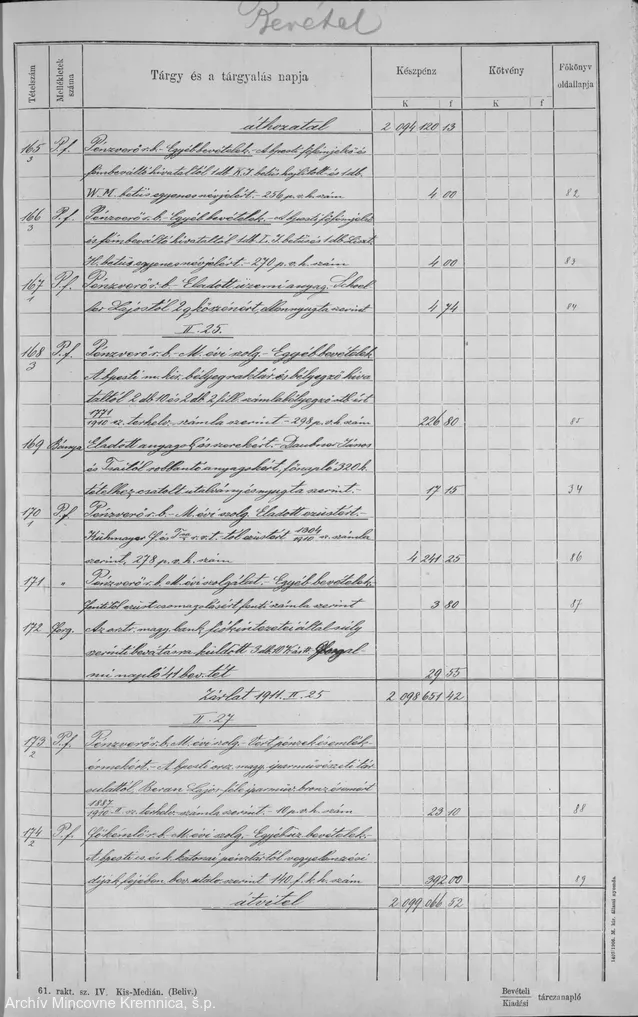 Bevétel
Tételszám
Mellékletek száma
Tárgy és a tárgyalás napja
Készpénz
Kötvény
Főkönyv oldallapja
K f K f
áthozatal 2 094 120 13
165/3 P.f. Pénzverő r.b. - Egyéb bevételek. - A bpesti főfémjelző és
fémbeváltó hivataltól 1 db K.J. betűs hajlított és 1 db.
W. M. betűs egyenes névjelért. - 256 p.v.h. szám 4 00 82
166/3 P.f. Pénzverő r.b. - Egyéb bevételek. - A bpesti főfémjelző
és fémbeváltó hivataltól 1 db. L. J. betűs és 1 db.
H. betűs egyenes névjelért. - 270 p.v.h. szám 4 00 83
167/1 P.f. Pénzverő r.b. - Eladott üzemi anyag.
Lajostól 2 q kőszénért, ellennyugta szerint 4 74 84
II. 25.
168/3 P.f. Pénzverő r.b. - M. évi szolg. - Egyéb bevételek.
A bpesti m. kir. bélyegraktár és bélyegző hiva
taltól 2 db 10 és 2 db 2 fill. számlabélyegző
1771/1910 sz. terhelv. számla szerint - 298 p.v.h. szám 226 80 85
169 Bánya Eladott anyagok és szerekért. - János
és robbantó anyagokért, főnapló 320 b.
tételhez csatolt utalvány és nyugta szerint. - 17 15 34
170/1 P.f. Pénzverő r.b. - M. évi szolg. Eladott ezüstért. -
F. és r.t. től ezüstért 1304/1910 sz. számla
szerint, 278 p.v.h. szám 4 241 25 86
171 " Pénzverő r.b. M. évi szolgálat - Egyéb bevételek.
Fentitől ezüst csomagolásért fenti számla szerint 3 80 87
172 Forg. Az osztr. magy. bank fiókintézetei által súly
szerinti beváltásra küldött 3 db 10 K
napló 41 bev. tét 29 55
Zárlat 1911. II. 25 2 098 651 42
II. 27.
173/2 P.f. Pénzverő r.b. M. évi szolg. - Vert pénzek és emlék-
érmekért. - A bpesti orsz. magy. iparművészeti tár
sulattól, Beran Lajos-féle iparműv. bronz éremért
1887/1910-II. sz. terhelv. számla szerint. - 10 p.v.h. szám 23 10 88
174/2 P.f. Főkémlő r.b. M. évi szolg. Egyéb üz. bevételek. -
A bpesti cs. és k. katonai vegyelemzési
díjak fejében bev. utalv. szerint 140 f.k.h. szám 392 00 89
átvitel 2 099 066 52
61. rakt. sz. IV. Kis-Medián. (Beliv.)
Bevételi
Kiadási tárczanapló
M. kir. állami nyomda.
Archív Mincovne Kremnica, š.p.